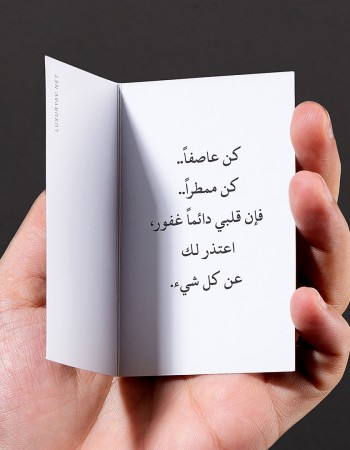 كن عاصفاً..
كن ممطراً..
فإن قلبي دائماً غفور،
اعتذر لك
عن كل شيء.